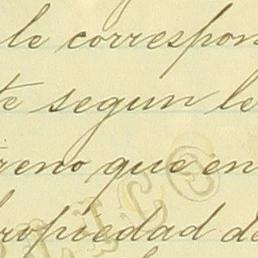 le correspon
te segun le
reno que en
ropiedad de